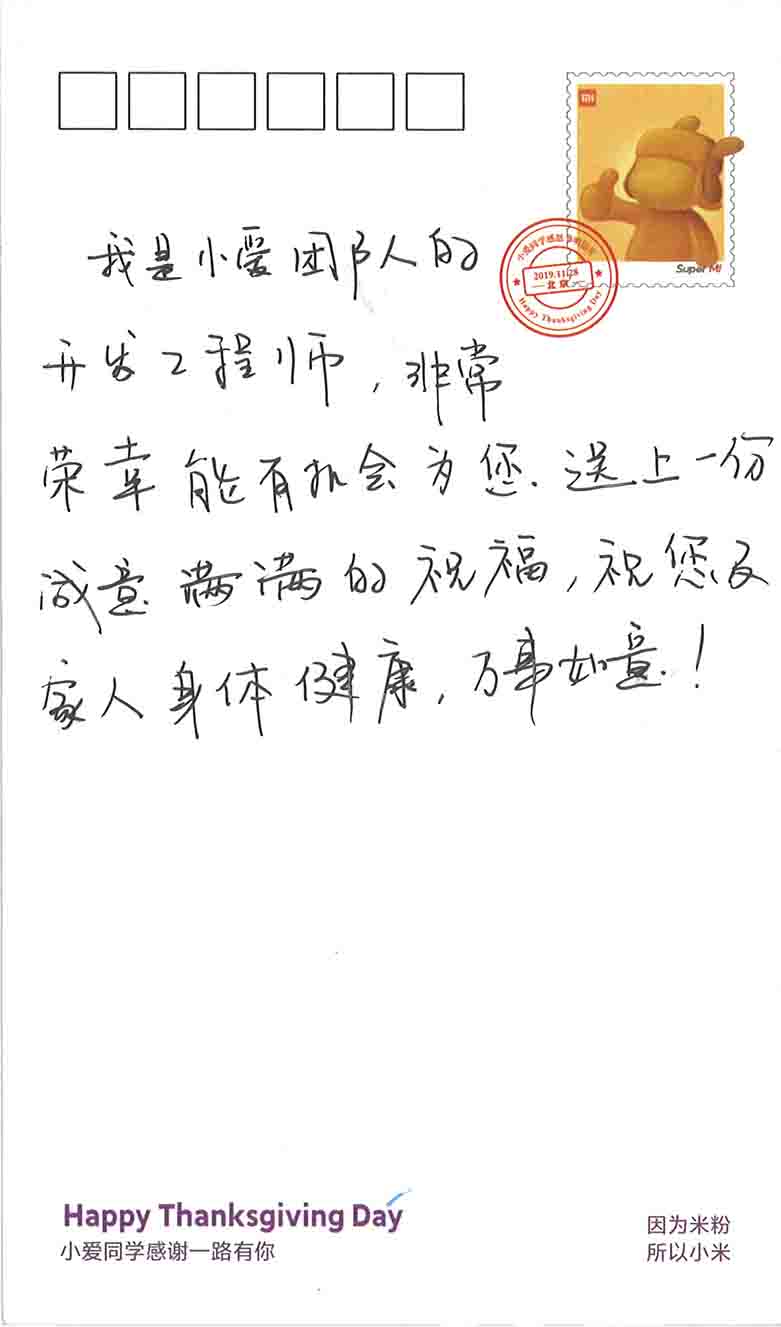 MI
Super MI
小爱同学感恩节明信片
2019.11.28
北京
Happy Thanksgiving Day
我是小爱团队人的
开发工程师，非常
荣幸能有机会为您送上一份
诚意满满的祝福，祝您及
家人身体健康，万事如意！
Happy Thanksgiving Day
小爱同学感谢一路有你
因为米粉
所以小米